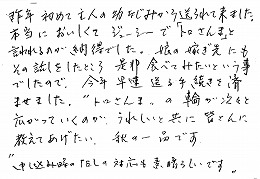 昨年 初めて主人の幼なじみから送られて来ました。
本当に おいしくて ジューシーで "トロさんま"と
言われるのが納得でした。 娘の嫁ぎ先にも
その話しをしたところ 是非 食べてみたいという事
でしたので、 今年 早速 送る手続きを済
ませました。 "トロさんま"の輪が次々と
広がっていくのが、うれしいと共に 皆さんに
教えてあげたい 秋の一品です。
"申し込み時のTELの対応も素晴らしいです"